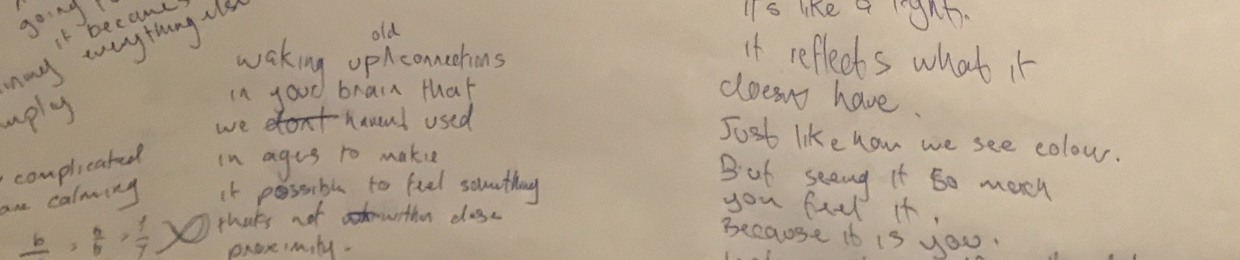 going
it because
everything else
complicated
are calming
old
waking up connections
in your brain that
we dont havent used
in ages to make
it possible to feel something
thats not within close
proximity.
It's like a light.
it reflects what it
doesnt have.
Just like how we see colour.
But seeing it so much
you feel it.
Because it is you.